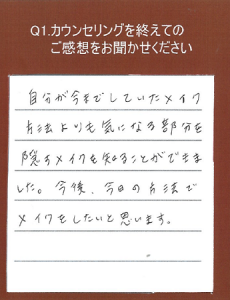 Q1.カウンセリングを終えての
ご感想をお聞かせください
自分が今までしていたメイク
方法よりも気になる部分を
隠すメイクを知ることができま
した。今後、今日の方法で
メイクをしたいと思います。